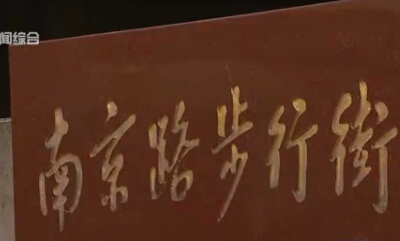 闻综合
南京路步行街